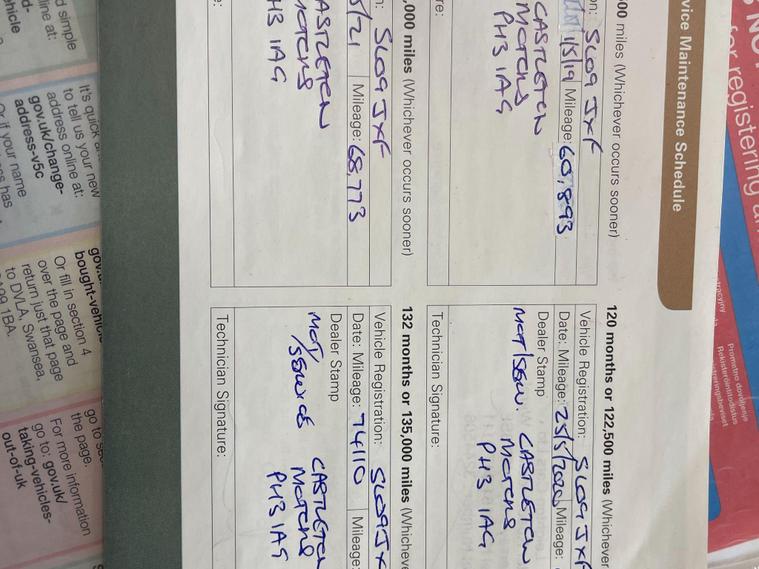 vice Maintenance Schedule
00 miles (Whichever occurs sooner)
on: SL09 JXF
1/5/19 Mileage: 60,893
CASTLETON
MOTORS
PH3 1AG
re:
,000 miles (Whichever occurs sooner)
n: SL09 JXF
5/21 Mileage: 68,773
CASTLETON
MOTORS
PH3 1AG
e:
120 months or 122,500 miles (Whichever
Vehicle Registration: SL09 JXF
Date: Mileage: 25/5/2020 Mileage:
Dealer Stamp
MOT/SERV. CASTLETON
MOTORS
PH3 1AG
Technician Signature:
132 months or 135,000 miles (Whicheve
Vehicle Registration: SL09 JX
Date: Mileage: 74110 Mileage:
Dealer Stamp
MOT/
SERVICE CASTLETON
MOTORS
PH3 1AG
Technician Signature:
S NOT
for registering a
Promstne dovoljenje
Rekisteröintitodistus
d simple
line at:
d-
ehicle
It's quick a
to tell us your new
address online at:
gov.uk/change-
address-v5c
Or if your name
ss has
gov.u
bought-vehicle
Or fill in section 4
over the page and
return just that page
to DVLA, Swansea,
SA99 1BA.
go to sec
the page.
For more information
go to: gov.uk/
taking-vehicles-
out-of-uk